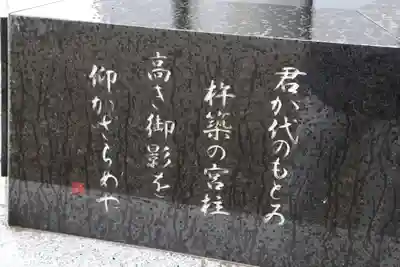 君か代のもとゐ
杵築の宮柱
高き御影を
仰かさらめや